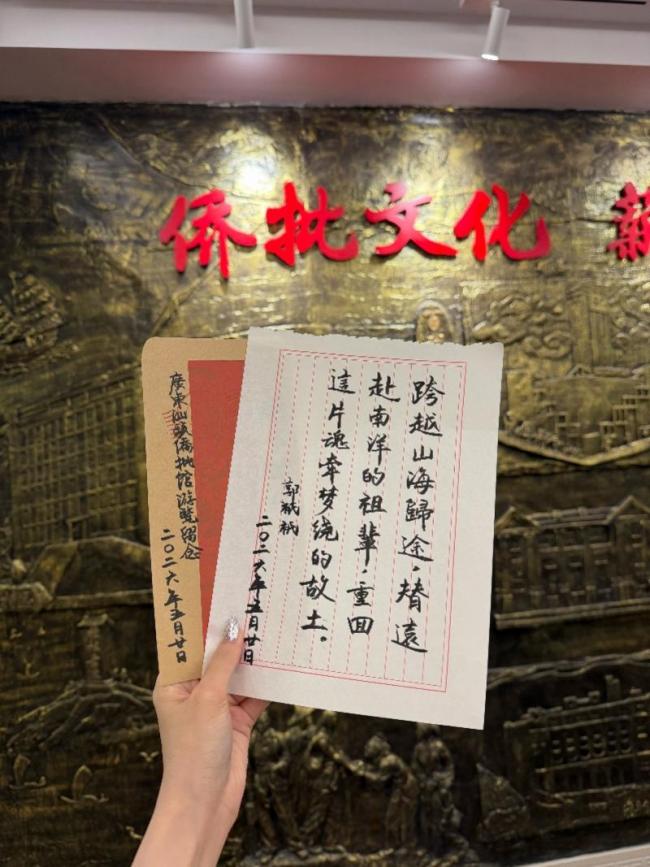 侨批文化
跨越山海歸途，替遠
赴南洋的祖輩，重回
這片魂牵梦绕的故土。
二〇二六年五月廿日
廣東汕頭僑批馆游览留念
二〇二六年五月廿日